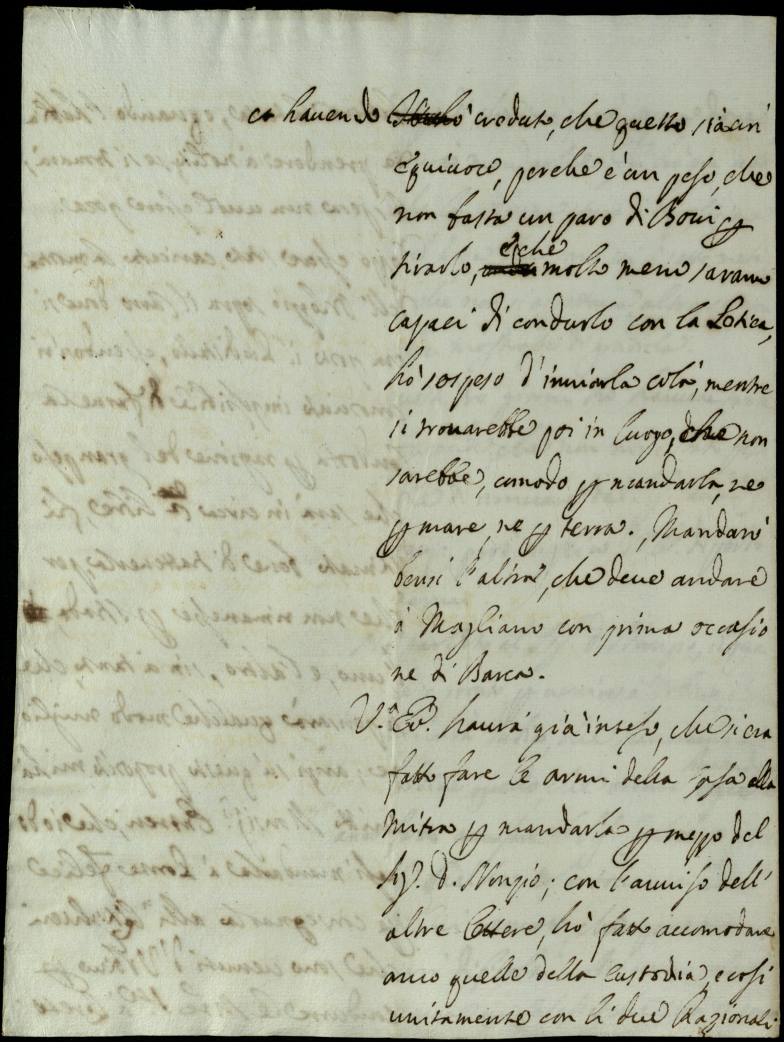 et havendo creduto, che questo sia un
equivoco, perche è un peso, che
non basta un paro di Bovi p
tirarlo, e che molto meno saranno
capaci di condurlo con la Letica,
hò sospeso d'inviarla colà, mentre
si trovarebbe poi in luogo, che non
sarebbe comodo p mandarla, ne
p mare, ne p terra. Mandarò
bensi l'altra, che deve andare
à Magliano con prima occasio
ne di Barca.
V.ª E. havrà già inteso, che si era
fatto fare le armi della
Mitra p mandarla p mezzo del
Sig.r D. Nonzio; con l'avviso dell'
altre Lettere, hò fatto accomodare
anco quelle della Custodia, e così
unitamente con li due Razionali